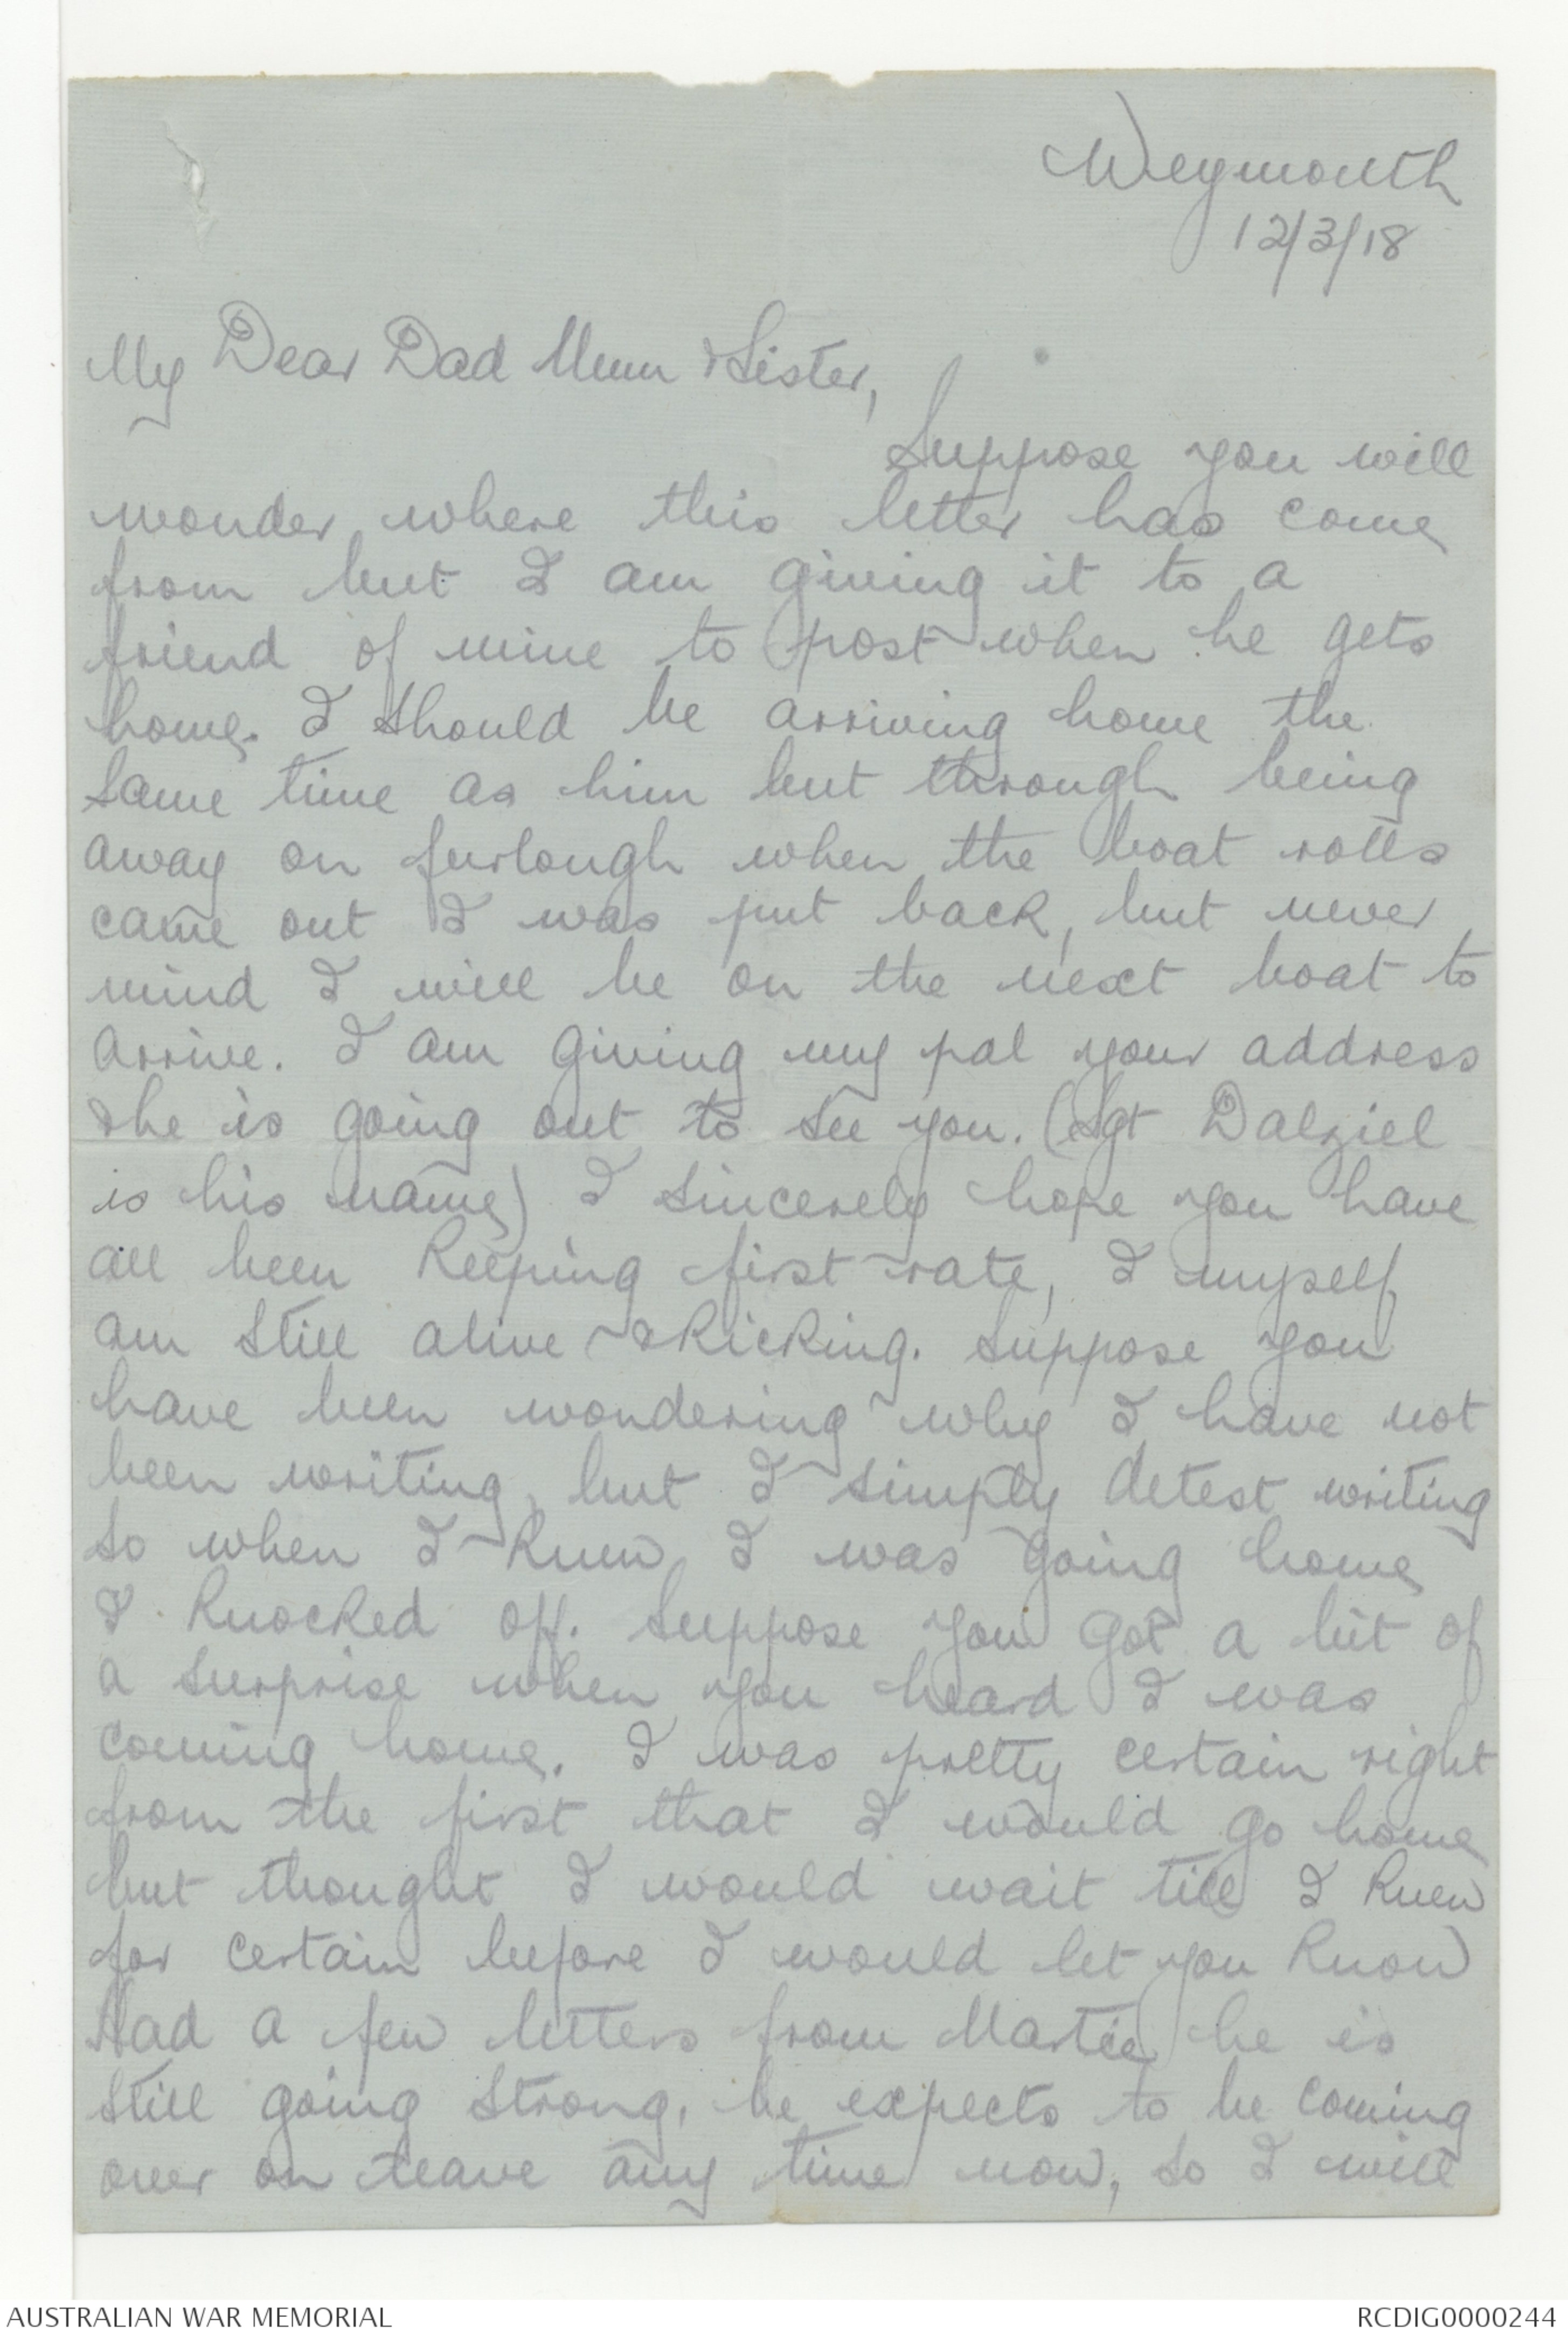 Weymouth
12/3/18
My Dear Dad Mum & Sister,
Suppose you will
wonder where this letter has come
from but I am giving it to a
friend of mine to post when he gets
home. I should be arriving home the
same time as him but through being
away on furlough when the boat rolls
came out I was put back, but never
mind I will be on the next boat to
arrive. I am giving my pal your address
& he is going out to see you. (Sgt Dalziel
is his name) I sincerely hope you have
all been keeping first rate, I myself
am still alive & kicking. Suppose you
have been wondering why I have not
been writing, but I simply detest writing
so when I knew I was going home
I knocked off. Suppose you got a bit of
a surprise when you heard I was
coming home. I was pretty certain right
from the first that I would go home
but thought I would wait till I knew
for certain before I would let you know
Had a few letters from Martie he is
still going strong, he expects to be coming
over on leave any time now, so I will
AUSTRALIAN WAR MEMORIAL
RCDIG0000244